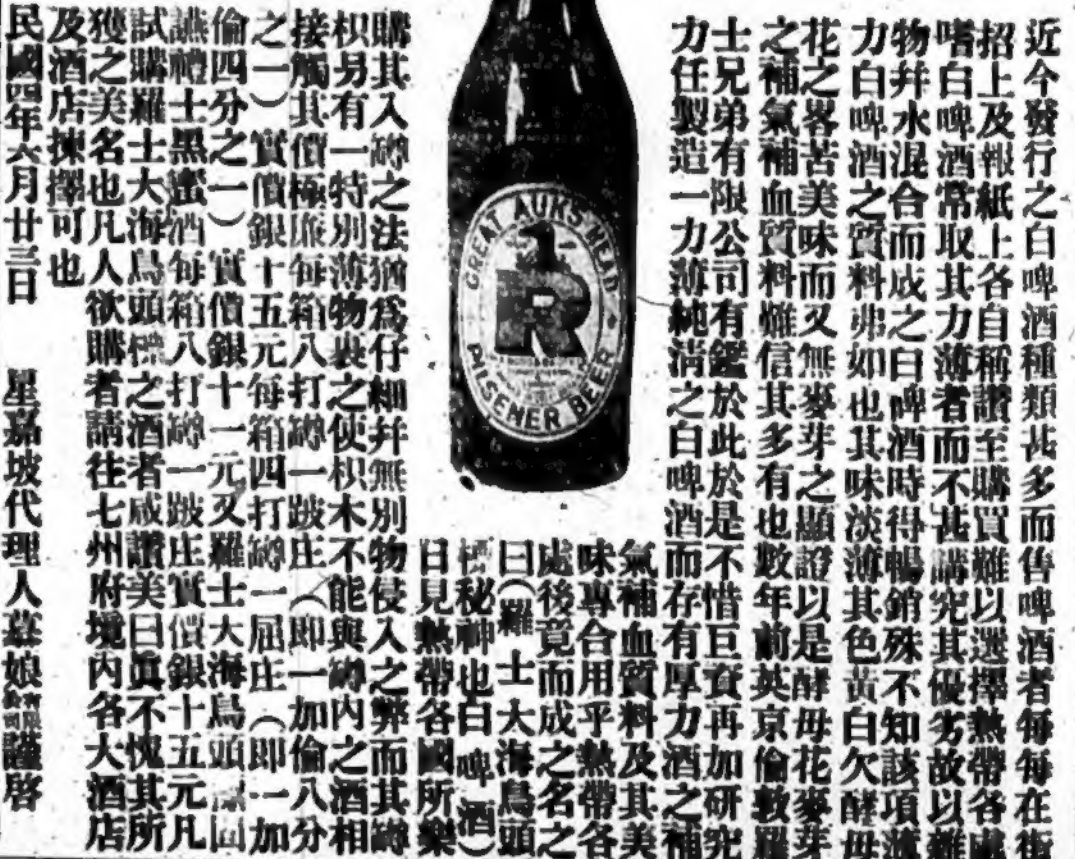 近今發行之白啤酒種類甚多而售啤酒者每每在街
招上及報紙上各自稱讚至購買難以選擇熱帶各處
嗜白啤酒常取其力薄者而不甚講究其優劣故以雜
物井水混合而成之白啤酒時得暢銷殊不知該項薄
力白啤酒之質料弗如也其味淡薄其色黃白欠酵母
花之畧苦美味而又無麥芽之顯證以是酵母花麥芽
之補氣補血質料難信其多有也數年前英京倫敦羅
士兄弟有限公司有鑑於此於是不惜巨資再加研究
力任製造一力薄純淸之白啤酒而存有厚力酒之補
氣補血質料及其美
味專合用乎熱帶各
處後竟而成之名之
曰(羅士大海鳥頭
標秘神也白啤酒)
日見熱帶各國所樂
GREAT AUKS HEAD
1
R
PILSENER BEER
購其入罇之法猶爲仔細幷無別物侵入之弊而其罇
枳另有一特別薄物裹之使枳木不能與罇內之酒相
接觸其價極廉每箱八打罇一跛庄(即一加倫八分
之一)實價銀十五元每箱四打罇一屈庄(即一加
倫四分之一)實價銀十一元又羅士大海鳥頭標
讌禮士黑蜜酒每箱八打罇一跛庄實價銀十五元凡
試購羅士大海鳥頭標之酒者咸讚美曰眞不愧其所
獲之美名也凡人欲購者請往七州府境內各大酒店
及酒店揀擇可也
民國四年六月廿三日 星嘉坡代理人慕娘有限公司謹啓